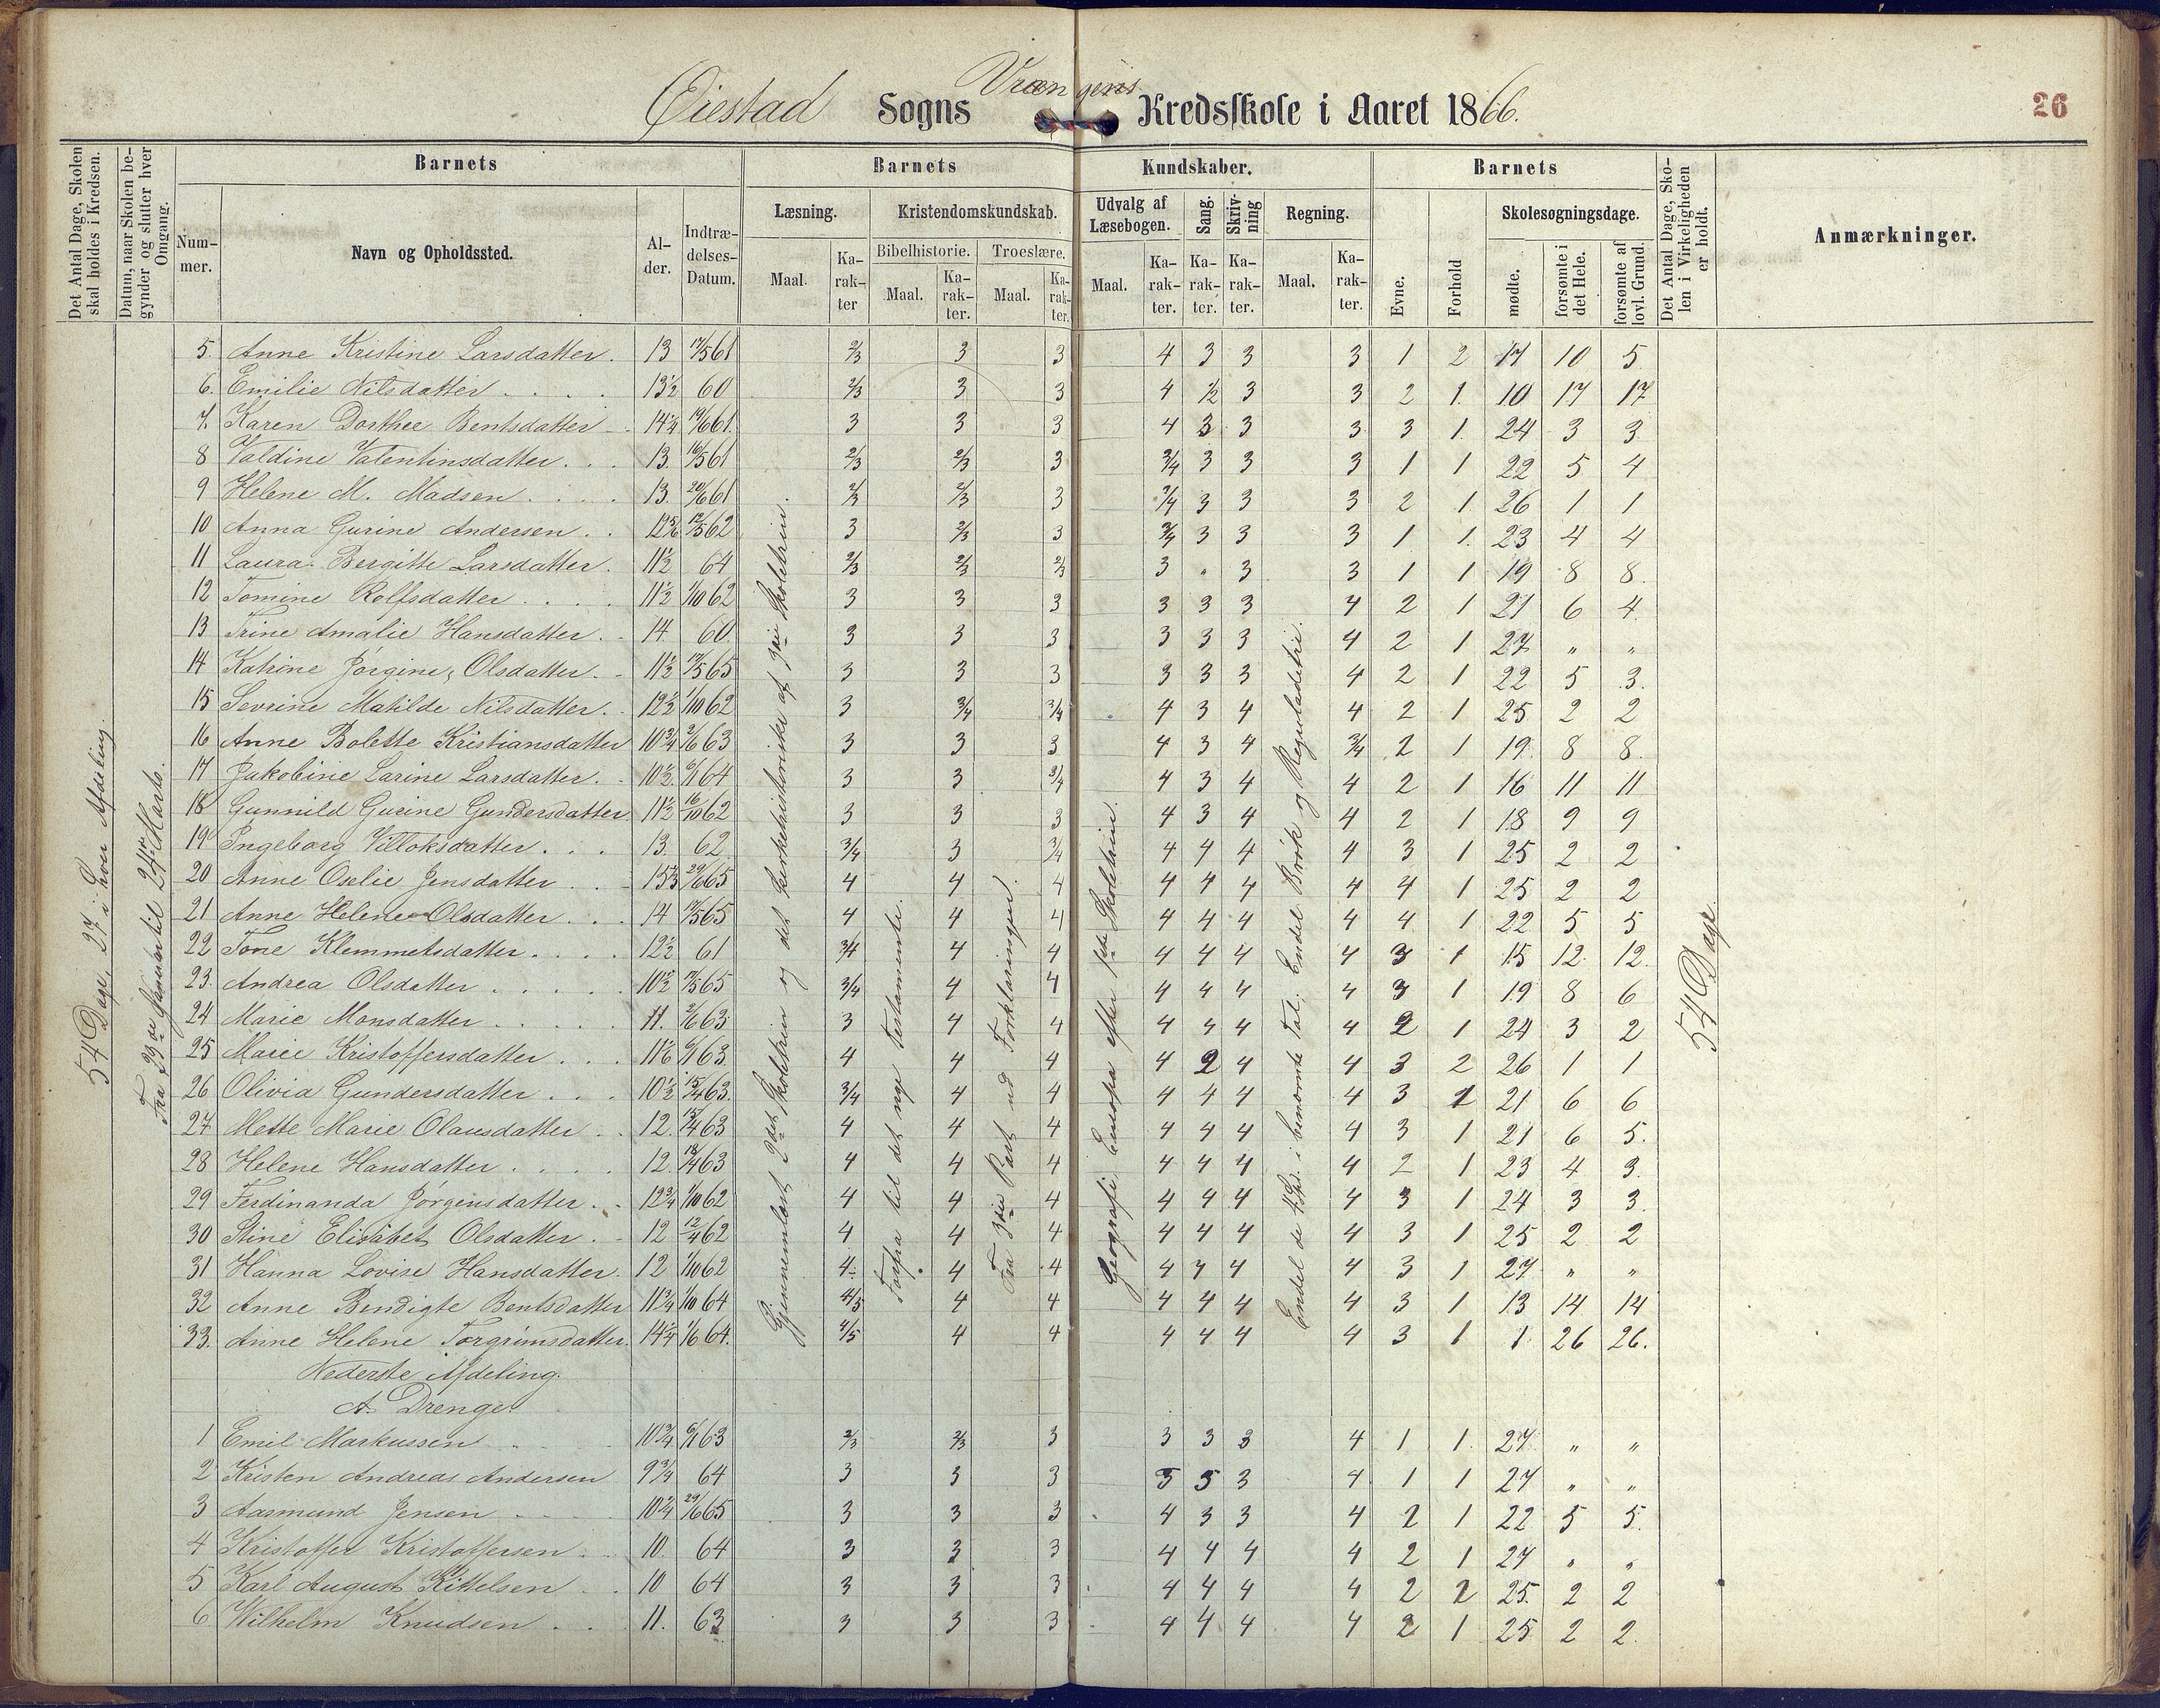 Øiestad Sogns Vrængens Kredsskole i Aaret 1866.
26
Det Antal Dage, Skolen skal holdes i Kredsen.
Datum, naar Skolen begynder og slutter hver Omgang.
Barnets
Nummer.
Navn og Opholdssted.
Alder.
Indtrædelses-Datum.
Barnets Kundskaber.
Læsning.
Maal.
Karakter
Kristendomskundskab.
Bibelhistorie.
Maal.
Karakter.
Troeslære.
Maal.
Karakter.
Udvalg af Læsebogen.
Maal.
Karakter.
Sang.
Karakter.
Skrivning
Karakter.
Regning.
Maal.
Karakter.
Barnets
Evne.
Forhold
Skolesøgningsdage.
mødte.
forsømte i det Hele.
forsømte af lovl. Grund.
Det Antal Dage, Skolen i Virkeligheden er holdt.
Anmærkninger.
54 Dage, 27 i hver Afdeling.
Fra 23de Januar til 24de Marts.
Gjennemlæst 2det Skoletrin og det kirkehistoriske af 3die Skoletrin.
Forfra til det nye Testamente.
Fra 3die Part ud Forklaringen.
Geografi Europa efter 1ste Skoletrin.
Endel de 4 Sp. i benævnte Tal. Endel Brøk og Reguladetri.
54 Dage.
5. Anne Kristine Larsdatter. 13 17/5 61 2/3 3 3 4 3 3 3 1 2 17 10 5
6. Emilie Nilsdatter 13½ 60 2/3 3 3 4 ½ 3 3 2 1. 10 17 17
7. Karen Dorthee Bentsdatter 14¼ 19/6 61. 3 3 3 4 3 3 3 3 1. 24 3 3
8 Valdine Valentinsdatter. 13. 16/5 61 2/3 2/3 3 3/4 3 3 3 1 1 22 5 4
9 Helene M. Madsen 13. 20/6 61 2/3 2/3 3 3/4 3 3 3 2 1. 26 1 1
10 Anna Gurine Andersen 12 5/6 12/5 62 3 2/3 3 3/4 3 3 3 1 1. 23 4 4
11 Laura Bergitte Larsdatter. 11½ 64 2/3 2/3 2/3 3 " 3 3 1 1 19 8 8.
12 Tomine Rolfsdatter 11½ 1/10 62 3 3 3 3 3 3 4 2 1 21 6 4.
13 Trine Amalie Hansdatter. 14. 60. 3 3 3 3 3 3 4 2 1 27 " "
14 Katrine Jørgine Olsdatter. 11½ 17/5 65 3 3 3 3 3 3 4 2 1 22 5 3.
15 Sevrine Matilde Nilsdatter. 12½ 1/10 62 3 3/4 3/4 4 3 4 4 2 1 25 2 2
16 Anne Bolette Kristiansdatter 10¾ 2/6 63 3 3 3 4 3 4 3/4 2 1 19. 8 8.
17 Jakobine Larine Larsdatter. 10½. 6/1 64 3 3 3/4 4 3 4 4 2 1 16 11 11
18 Gunnild Gurine Gundersdatter. 11½ 16/10 62 3 3 3 4 3 4 4 2 1 18 9 9
19 Ingeborg Villoksdatter 13. 62. 3/4 3 3/4 4 4 4 4 3 1 25 2 2
20 Anne Oselie Jensdatter 15⅓ 29/6 65 4 4 4 4 4 4 4 4 1 25 2 2
21 Anne Helene Olsdatter 14 17/5 65 4 4 4 4 4 4 4 4 1 22 5 5
22 Tone Klemmetsdatter 12½ 61 3/4 4 4 4 4 4 4 3 1 15 12. 12.
23. Andrea Olsdatter 10½ 17/5 65 3/4 4 4 4 4 4 4 3 1 19 8 6
24 Marie Monsdatter 11. 2/6 63 3 4 4 4 4 4 4 2 1 24 3 2
25 Marie Kristoffersdatter 11 1/6 6/1 63 4 4 4 4 2 4 4 3 2 26 1 1
26 Olivia Gundersdatter 10½ 15/4 63. 3/4 4 4 4 4 4 4 3 1 21 6 6
27 Mette Marie Olausdatter 12. 15/4 63 4 4 4 4 4 4 4 3 1 21 6 5.
28 Helene Hansdatter 12. 18/4 63 4 4 4 4 4 4 4 2 1 23 4 3.
29 Ferdinanda Jørgensdatter 12¾ 1/10 62 4 4 4 4 4 4 4 3 1 24 3 3.
30 Stine Elisabet Olsdatter. 12 12/4 62 4 4 4 4 4 4 4 3 1 25 2 2
31 Hanna Lovise Hansdatter. 12 1/10 62 4 4 4 4 4 4 4 3 1 27 " "
32 Anne Bendigte Bentsdatter 11¾ 1/10 64 4/5 4 4 4 4 4 4 3 1 13 14 14
33. Anne Helene Torgrimsdatter. 14¼ 1/6 64. 4/5 4 4 4 4 4 4 3 1 1 26 26.
Nederste Afdeling.
A. Drenge
1 Emil Markussen 10¾ 6/1 63 2/3 2/3 3 3 3 3 4 1 1. 27 " "
2 Kristen Andreas Andersen 9¾ 64 3 3 3 3 3 3 4. 1 1 27 " "
3 Aasmund Jensen 10¼ 29/6 65 3 3 3 4 3 3 4 2 1 22 5 5.
4 Kristoffer Kristoffersen 10. 64 3 3 3 4 4 4 4 2 1 27 " "
5 Karl August Kittelsen 10 64 3 3 3 4 4 4 4 2 2 25. 2 2
6 Wilhelm Knudsen 11. 63 3 3 3 4 4 4 4 2 1 25 2 2.